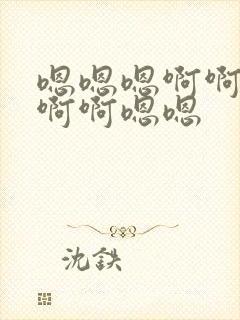 嗯嗯嗯啊啊
啊啊嗯嗯
沈鉄